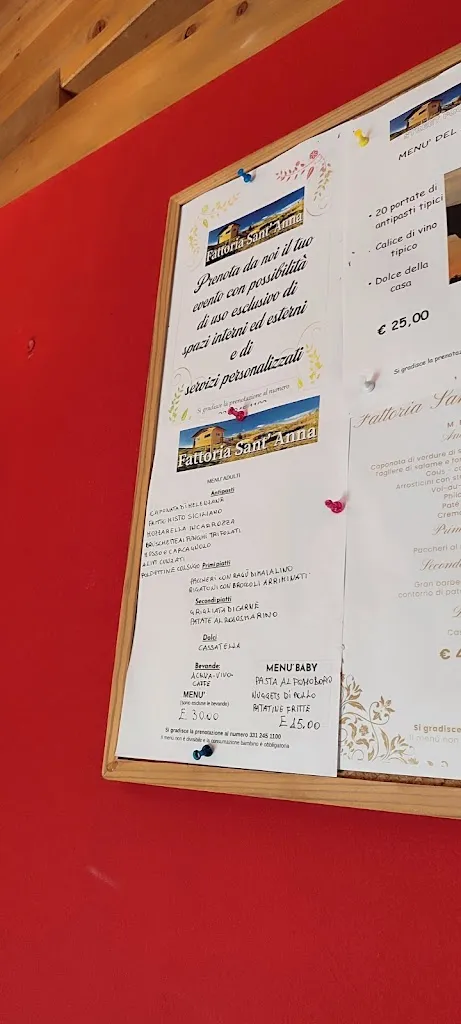 Fattoria Sant'Anna
Prenota da noi il tuo
evento con possibilità
di uso esclusivo di
spazi interni ed esterni
e di
servizi personalizzati
Si gradisce la prenotazione al numero
Fattoria Sant'Anna
MENU' ADULTI
Antipasti
CAPONATA DI MELENZANE
FRITTO MISTO SICILIANO
MOZZARELLA IN CARROZZA
BRUSCHETTE AI FUNGHI TRIFOLATI
POLPETTINE COL SUGO
Primi piatti
PACCHERI CON RAGÙ DI MAIALINO
RIGATONI CON BROCCOLI ARRIMINATI
Secondi piatti
GRIGLIATA DI CARNE
PATATE AL ROSMARINO
Dolci
CASSATELLA
Bevande:
ACQUA-VINO-
CAFFE
MENU'
(sono escluse le bevande)
£ 30,00
MENU' BABY
PASTA AL POMODORO
NUGGETS DI POLLO
PATATINE FRITTE
£ 15,00
Si gradisce la prenotazione al numero 331 245 1100
Il menù non è divisibile e la consumazione bambino è obbligatoria
MENU' DEL
• 20 portate di
antipasti tipici
Calice di vino
tipico
• Dolce della
casa
€ 25,00
Si gradisce la prenotaz
Fattoria San
Caponata di verdure di s
Tagliere di salame e fo
Cous - co
Arrosticini con st
Vol-au-
Phila
Patè
Crem
Prim
Paccheri al
Second
Gran barbe
contorno di pata
Ca
€
Si gradisce
Il menù non